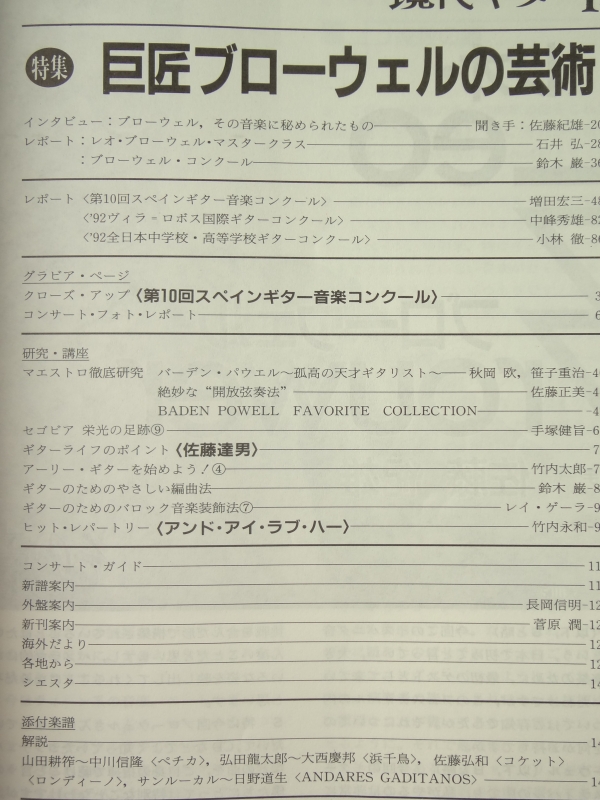 現代ギター
特集 巨匠ブローウェルの芸術
インタビュー：ブローウェル，その音楽に秘められたもの――聞き手：佐藤紀雄-20
レポート：レオ・ブローウェル・マスタークラス――石井 弘-28
：ブローウェル・コンクール――鈴木 巌-36
レポート〈第10回スペインギター音楽コンクール〉――増田宏三-48
〈'92ヴィラ＝ロボス国際ギターコンクール〉――中峰秀雄-82
〈'92全日本中学校・高等学校ギターコンクール〉――小林 徹-86
グラビア・ページ
クローズ・アップ〈第10回スペインギター音楽コンクール〉――3
コンサート・フォト・レポート――6
研究・講座
マエストロ徹底研究 バーデン・パウエル～孤高の天才ギタリスト～――秋岡 欧，笹子重治-4
絶妙な“開放弦奏法”――佐藤正美-4
BADEN POWELL FAVORITE COLLECTION――-4
セゴビア 栄光の足跡⑨――手塚健旨-6
ギターライフのポイント〈佐藤達男〉――7
アーリー・ギターを始めよう！④――竹内太郎-7
ギターのためのやさしい編曲法――鈴木 巌-8
ギターのためのバロック音楽装飾法⑦――レイ・ゲーラ-9
ヒット・レパートリー〈アンド・アイ・ラブ・ハー〉――竹内永和-9
コンサート・ガイド――11
新譜案内――11
外盤案内――長岡信明-12
新刊案内――菅原 潤-12
海外だより――12
各地から――12
シエスタ――14
添付楽譜
解説――14
山田耕筰～中川信隆〈ペチカ〉，弘田龍太郎～大西慶邦〈浜千鳥〉，佐藤弘和〈コケット〉
〈ロンディーノ〉，サンルーカル～日野道生〈ANDARES GADITANOS〉――14